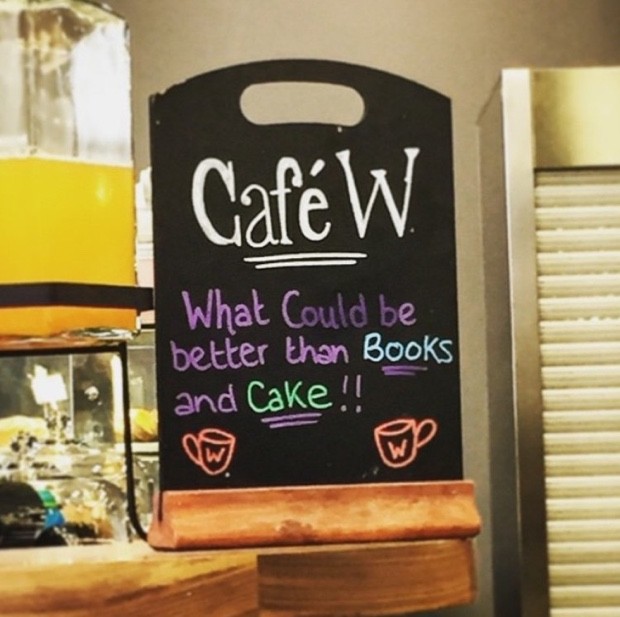 Café W
What Could be
better than Books
and Cake!!
W W